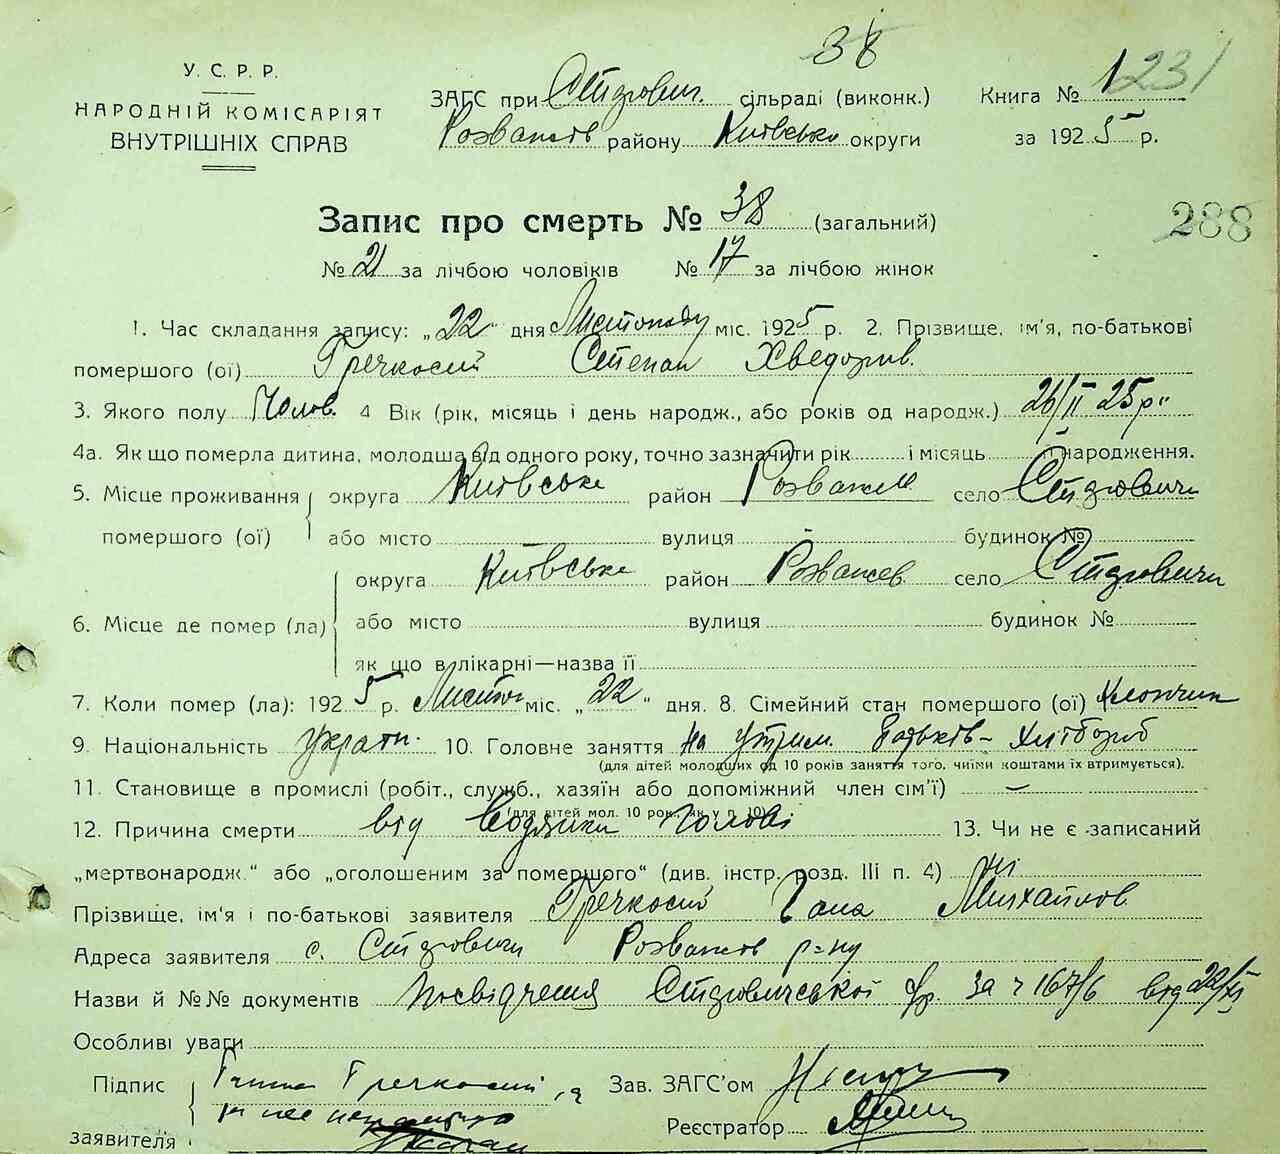 38
1231
У. С. Р. Р.
НАРОДНІЙ КОМІСАРІЯТ
ВНУТРІШНІХ СПРАВ
ЗАГС при сільраді (виконк.) Книга № 1
Розважів району Київсько округи за 1925 р.
Запис про смерть № 38 (загальний)
288
№ 21 за лічбою чоловіків № 17 за лічбою жінок
1. Час складання запису: „22" дня Листопаду міс. 1925 р. 2. Прізвище, ім'я, по-батькові
помершого (ої) Гречкосій Степан Хведоров.
3. Якого полу Чолов. 4 Вік (рік, місяць і день народж., або років од народж.) 26/II 25 р.
4а. Як що померла дитина, молодша від одного року, точно зазначити рік і місяць її народження.
5. Місце проживання округа Київське район Розважев село
помершого (ої) або місто вулиця будинок №
округа Київське район Розважев село
6. Місце де помер (ла) або місто вулиця будинок №
як що в лікарні—назва її
7. Коли помер (ла): 1925 р. Листоп міс. „22" дня. 8. Сімейний стан помершого (ої) Хлопчик
9. Національність Україн. 10. Головне заняття на утрим. батьків - хлібороб
(для дітей молодших од 10 років заняття того, чиїми коштами їх втримується).
11. Становище в промислі (робіт., служб., хазяїн або допоміжний член сім'ї) —
(для дітей мол. 10 рок., як у п. 10)
12. Причина смерти від Водянки голові 13. Чи не є записаний
„мертвонародж." або „оголошеним за помершого" (див. інстр. розд. III п. 4) ні
Прізвище, ім'я і по-батькові заявителя Гречкосій Гана Михайлов
Адреса заявителя с. Розважів р-ну
Назви й №№ документів Посвідчення за ч 167/6 від 22/XI
Особливі уваги
Підпис Ганна Гречкосій Зав. ЗАГС'ом
заявителя Реєстратор